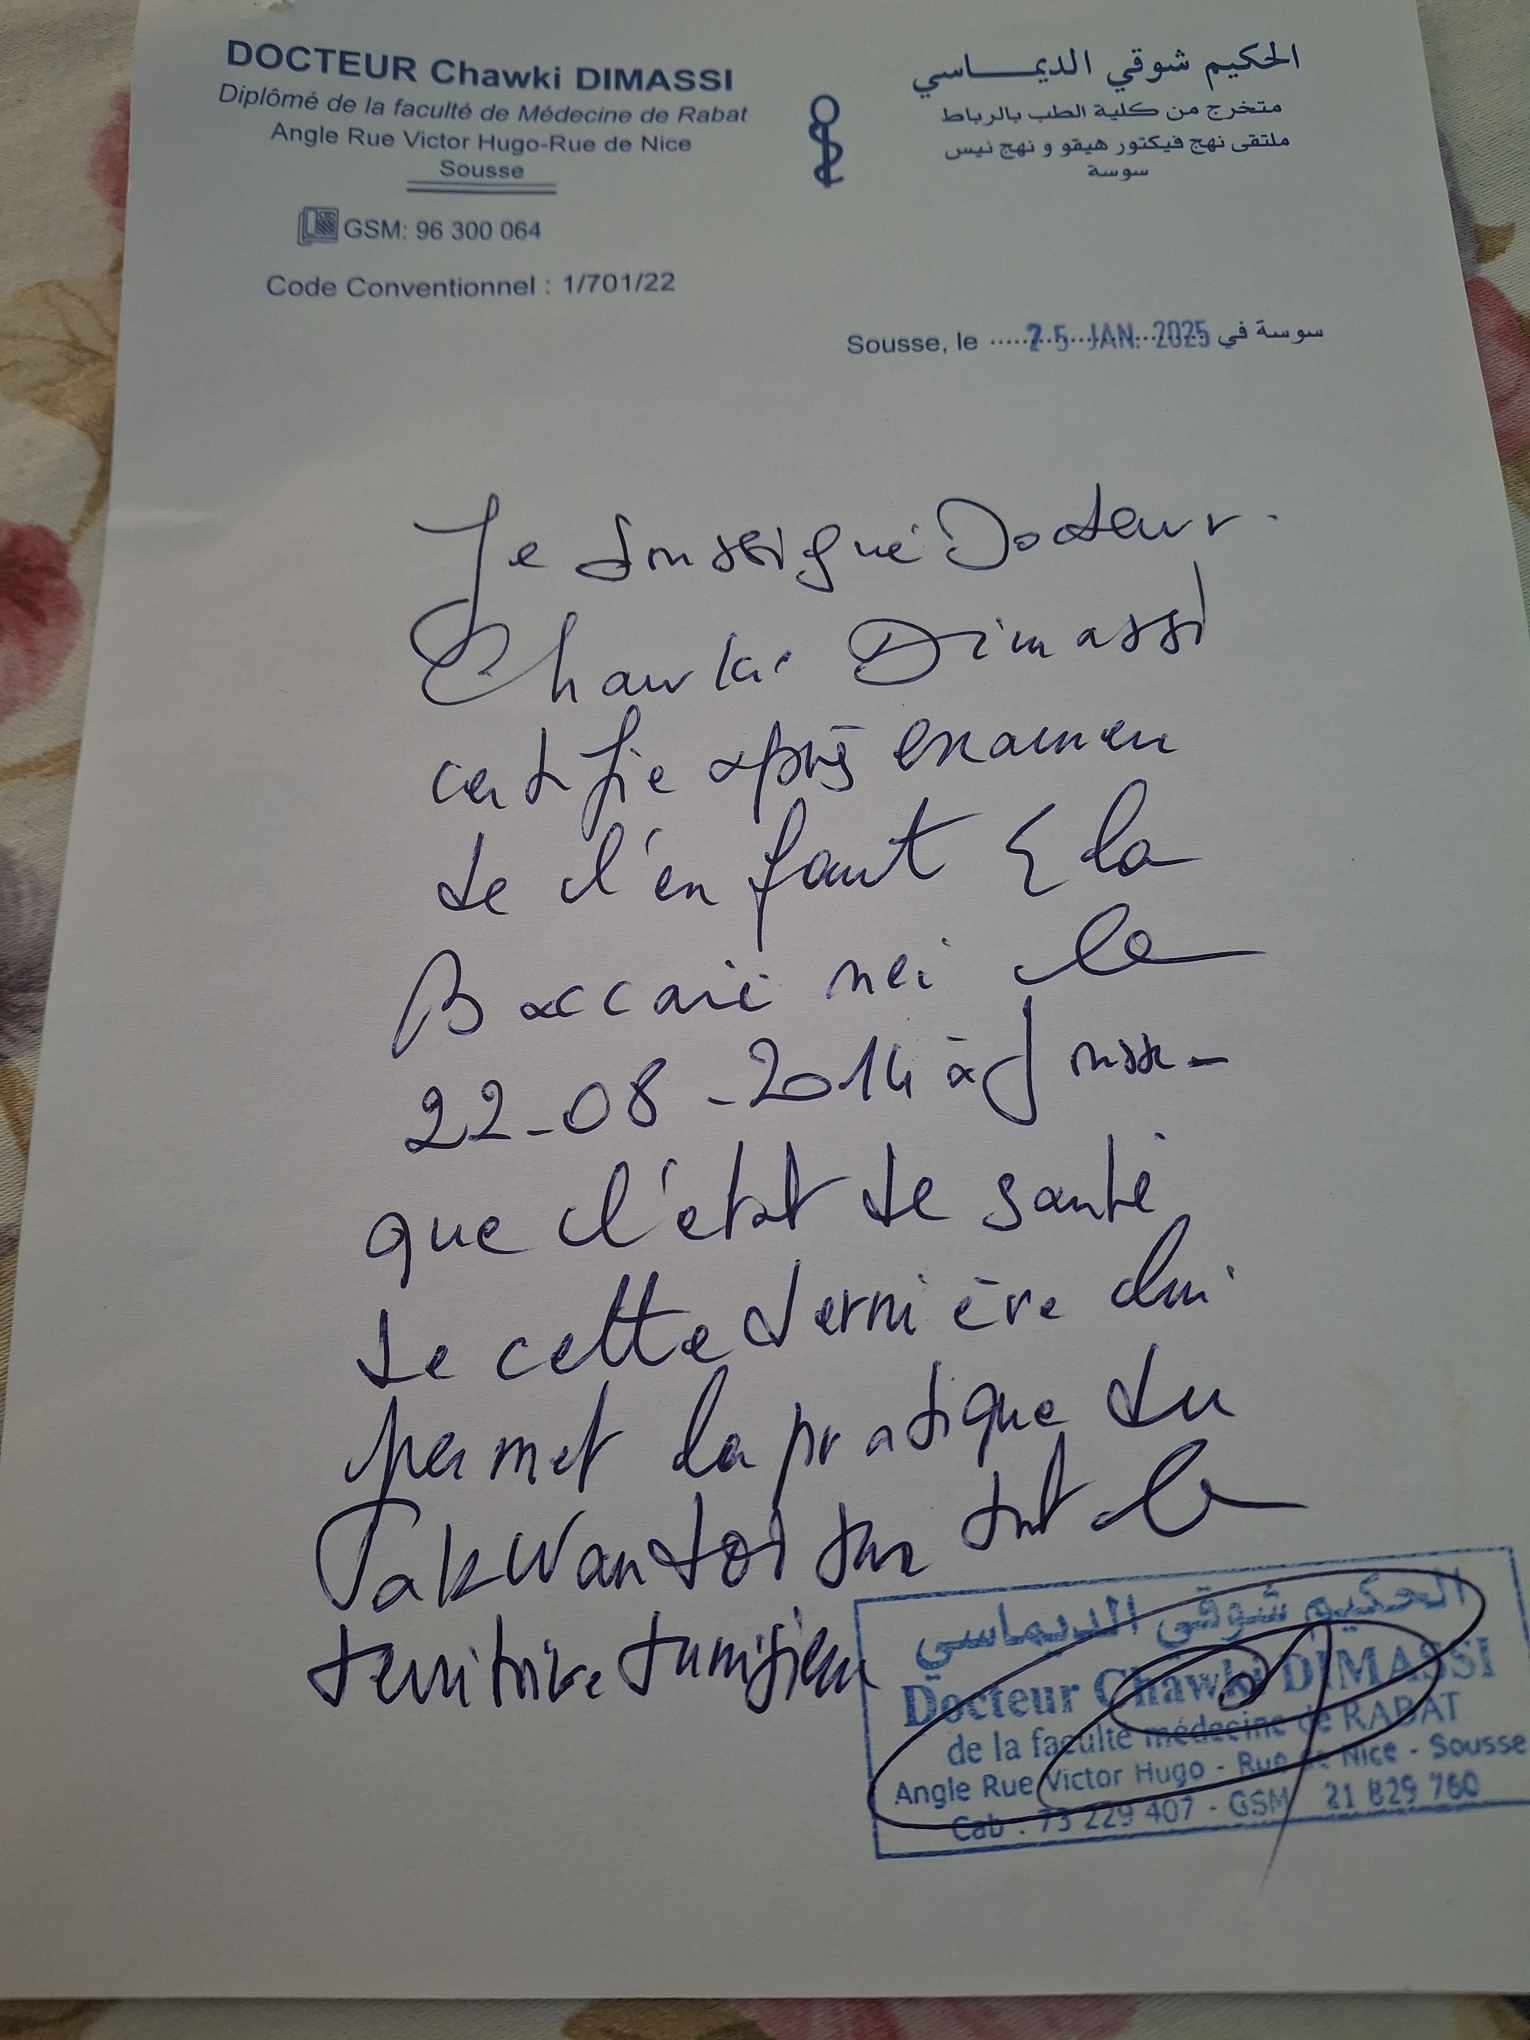 DOCTEUR Chawki DIMASSI
Diplômé de la faculté de Médecine de Rabat
Angle Rue Victor Hugo-Rue de Nice
Sousse
GSM: 96 300 064
Code Conventionnel : 1/701/22
الحكيم شوقي الديمـــاسي
متخرج من كلية الطب بالرباط
ملتقى نهج فيكتور هيقو و نهج نيس
سوسة
Sousse, le ..... 25 JAN. 2025 سوسة في
Je soussigné Docteur
Chawki Dimassi
certifie après examen
de l'enfant Ela
Baccari née le
22-08-2014 à Sousse
que l'état de santé
de cette dernière lui
permet la pratique du
Takwando sur tout le
territoire tunisien
الحكيم شوقي الديماسي
Docteur Chawki DIMASSI
de la faculté médecine de RABAT
Angle Rue Victor Hugo - Rue de Nice - Sousse
Cab : 73 229 407 - GSM 21 829 760